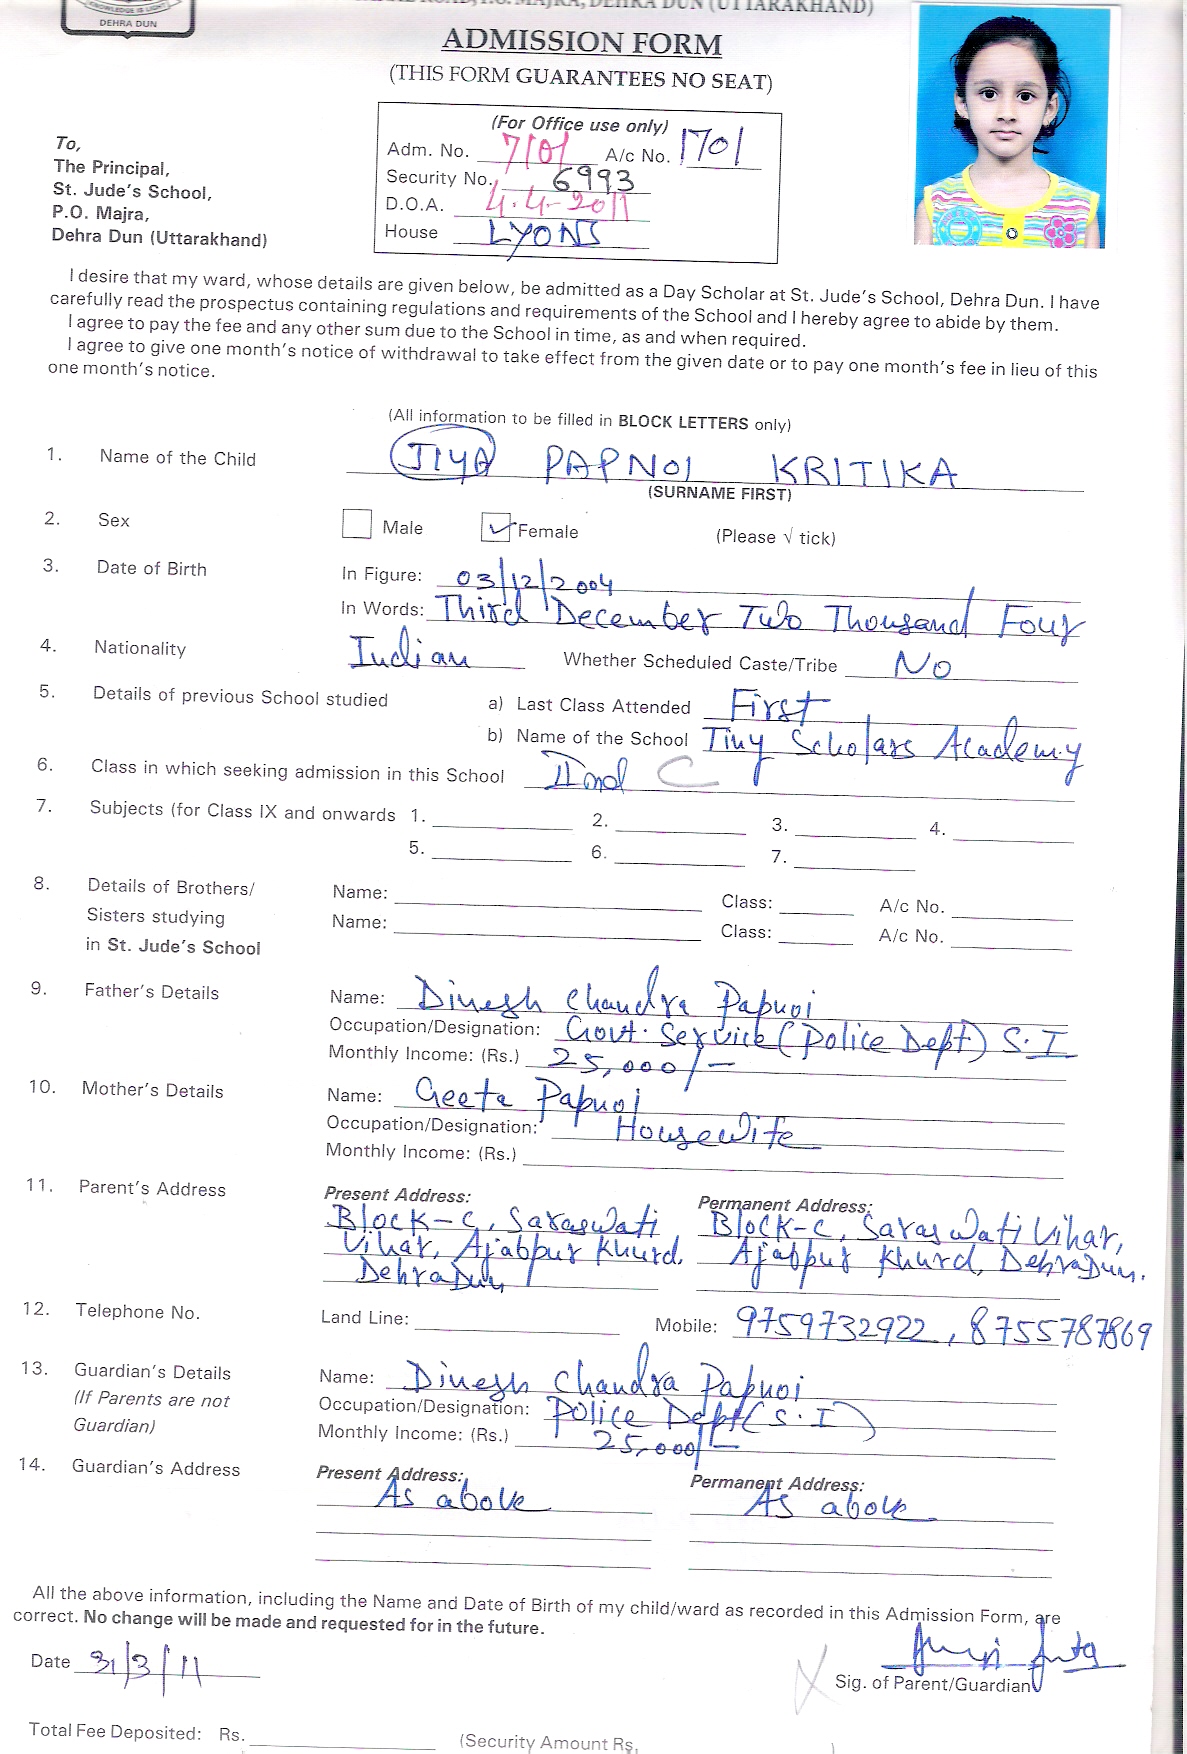 KNOWLEDGE IS LIGHT
DEHRA DUN
ROAD, P.O. MAJRA, DEHRA DUN (UTTARAKHAND)
ADMISSION FORM
(THIS FORM GUARANTEES NO SEAT)
(For Office use only)
Adm. No. 7101 A/c No. 1701
Security No. 6993
D.O.A. 4.4-2011
House LYONS
To,
The Principal,
St. Jude's School,
P.O. Majra,
Dehra Dun (Uttarakhand)
I desire that my ward, whose details are given below, be admitted as a Day Scholar at St. Jude's School, Dehra Dun. I have
carefully read the prospectus containing regulations and requirements of the School and I hereby agree to abide by them.
I agree to pay the fee and any other sum due to the School in time, as and when required.
I agree to give one month's notice of withdrawal to take effect from the given date or to pay one month's fee in lieu of this
one month's notice.
(All information to be filled in BLOCK LETTERS only)
1. Name of the Child JIYA PAPNOI KRITIKA
(SURNAME FIRST)
2. Sex Male Female (Please √ tick)
3. Date of Birth In Figure: 03/12/2004
In Words: Third December Two Thousand Four
4. Nationality Indian Whether Scheduled Caste/Tribe No
5. Details of previous School studied a) Last Class Attended First
b) Name of the School Tiny Scholars Academy
6. Class in which seeking admission in this School IInd C
7. Subjects (for Class IX and onwards 1. 2. 3. 4.
5. 6. 7.
8. Details of Brothers/ Name: Class: A/c No.
Sisters studying Name: Class: A/c No.
in St. Jude's School
9. Father's Details Name: Dinesh Chandra Papnoi
Occupation/Designation: Govt. Service (Police Deptt) S.I
Monthly Income: (Rs.) 25,000/-
10. Mother's Details Name: Geeta Papnoi
Occupation/Designation: Housewife
Monthly Income: (Rs.)
11. Parent's Address Present Address: Permanent Address:
Block-C, Saraswati Block-C, Saraswati Vihar,
Vihar, Ajabpur Khurd. Ajabpur Khurd, DehraDun.
DehraDun
12. Telephone No. Land Line: Mobile: 9759732922, 8755787869
13. Guardian's Details Name: Dinesh Chandra Papnoi
(If Parents are not Occupation/Designation: Police Deptt (S.I)
Guardian) Monthly Income: (Rs.) 25,000/-
14. Guardian's Address Present Address: Permanent Address:
As above As above
All the above information, including the Name and Date of Birth of my child/ward as recorded in this Admission Form, are
correct. No change will be made and requested for in the future.
Date 31/3/11
Sig. of Parent/Guardian
Total Fee Deposited: Rs. (Security Amount Rs.